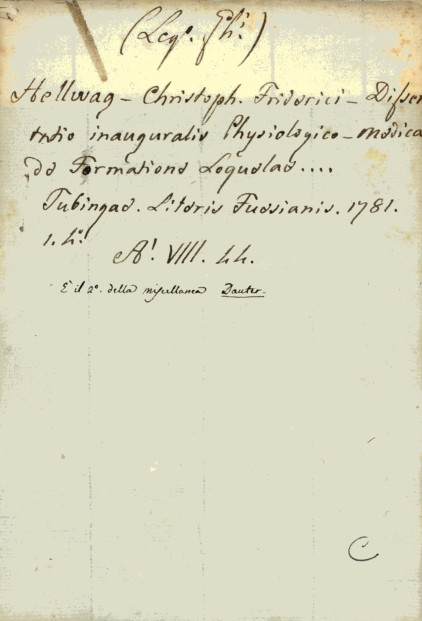 (Leg<sup>o</sup>. Gh<sup>i</sup>.)
Hellwag – Christoph. Friderici – Disser
tatio inauguralis Physiologico – medica
de Formatione Loquelae ....
Tubingae. Literis Fuesianis. 1781.
1. 4.°
A'. VIII. 44.
È il 2°. della miscellanea Dauter.
C